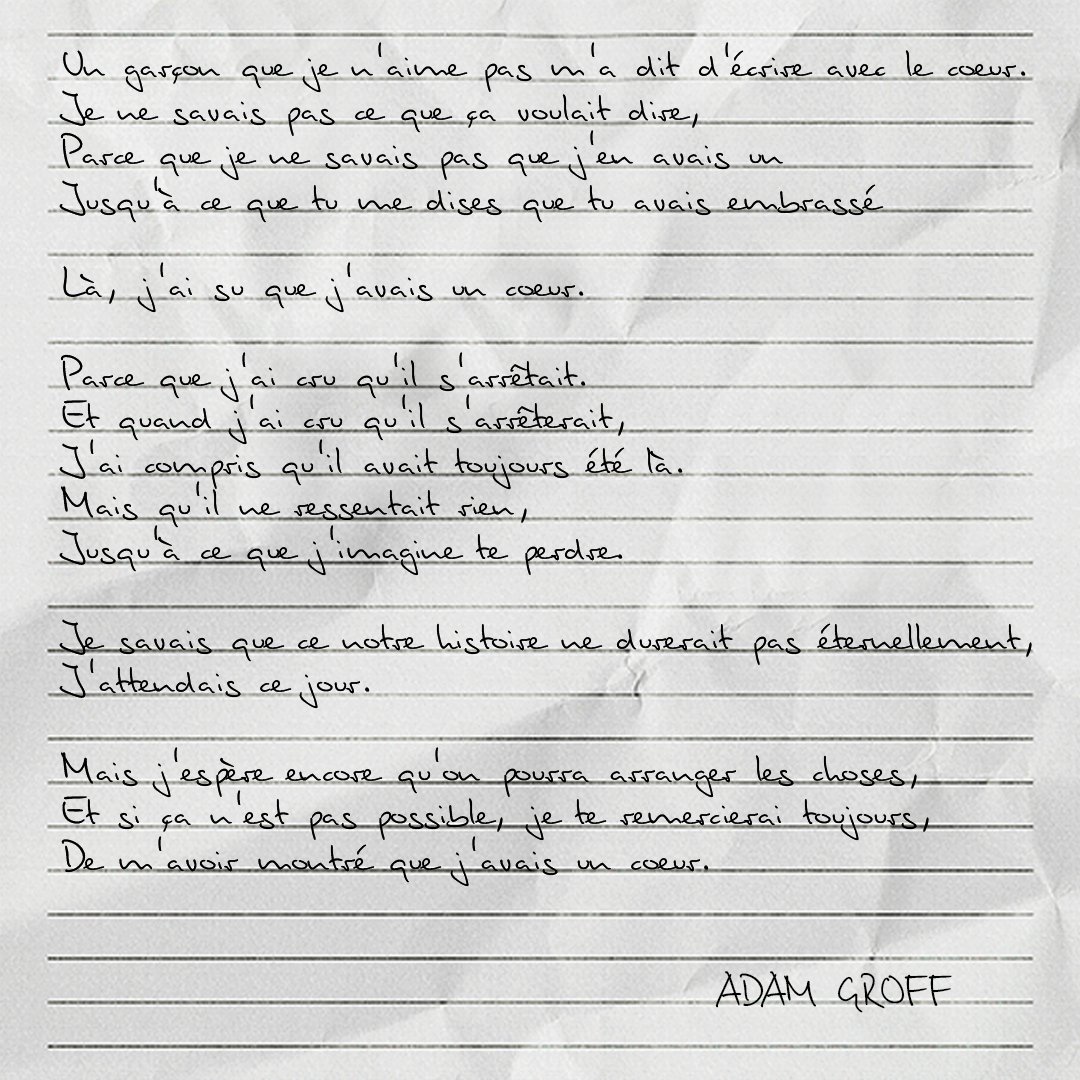 Un garçon que je n'aime pas m'a dit d'écrire avec le coeur.
Je ne savais pas ce que ça voulait dire,
Parce que je ne savais pas que j'en avais un
Jusqu'à ce que tu me dises que tu avais embrassé
Là, j'ai su que j'avais un coeur.
Parce que j'ai cru qu'il s'arrêtait.
Et quand j'ai cru qu'il s'arrêterait,
J'ai compris qu'il avait toujours été là.
Mais qu'il ne ressentait rien,
Jusqu'à ce que j'imagine te perdre.
Je savais que ce notre histoire ne durerait pas éternellement,
J'attendais ce jour.
Mais j'espère encore qu'on pourra arranger les choses,
Et si ça n'est pas possible, je te remercierai toujours,
De m'avoir montré que j'avais un coeur.
ADAM GROFF